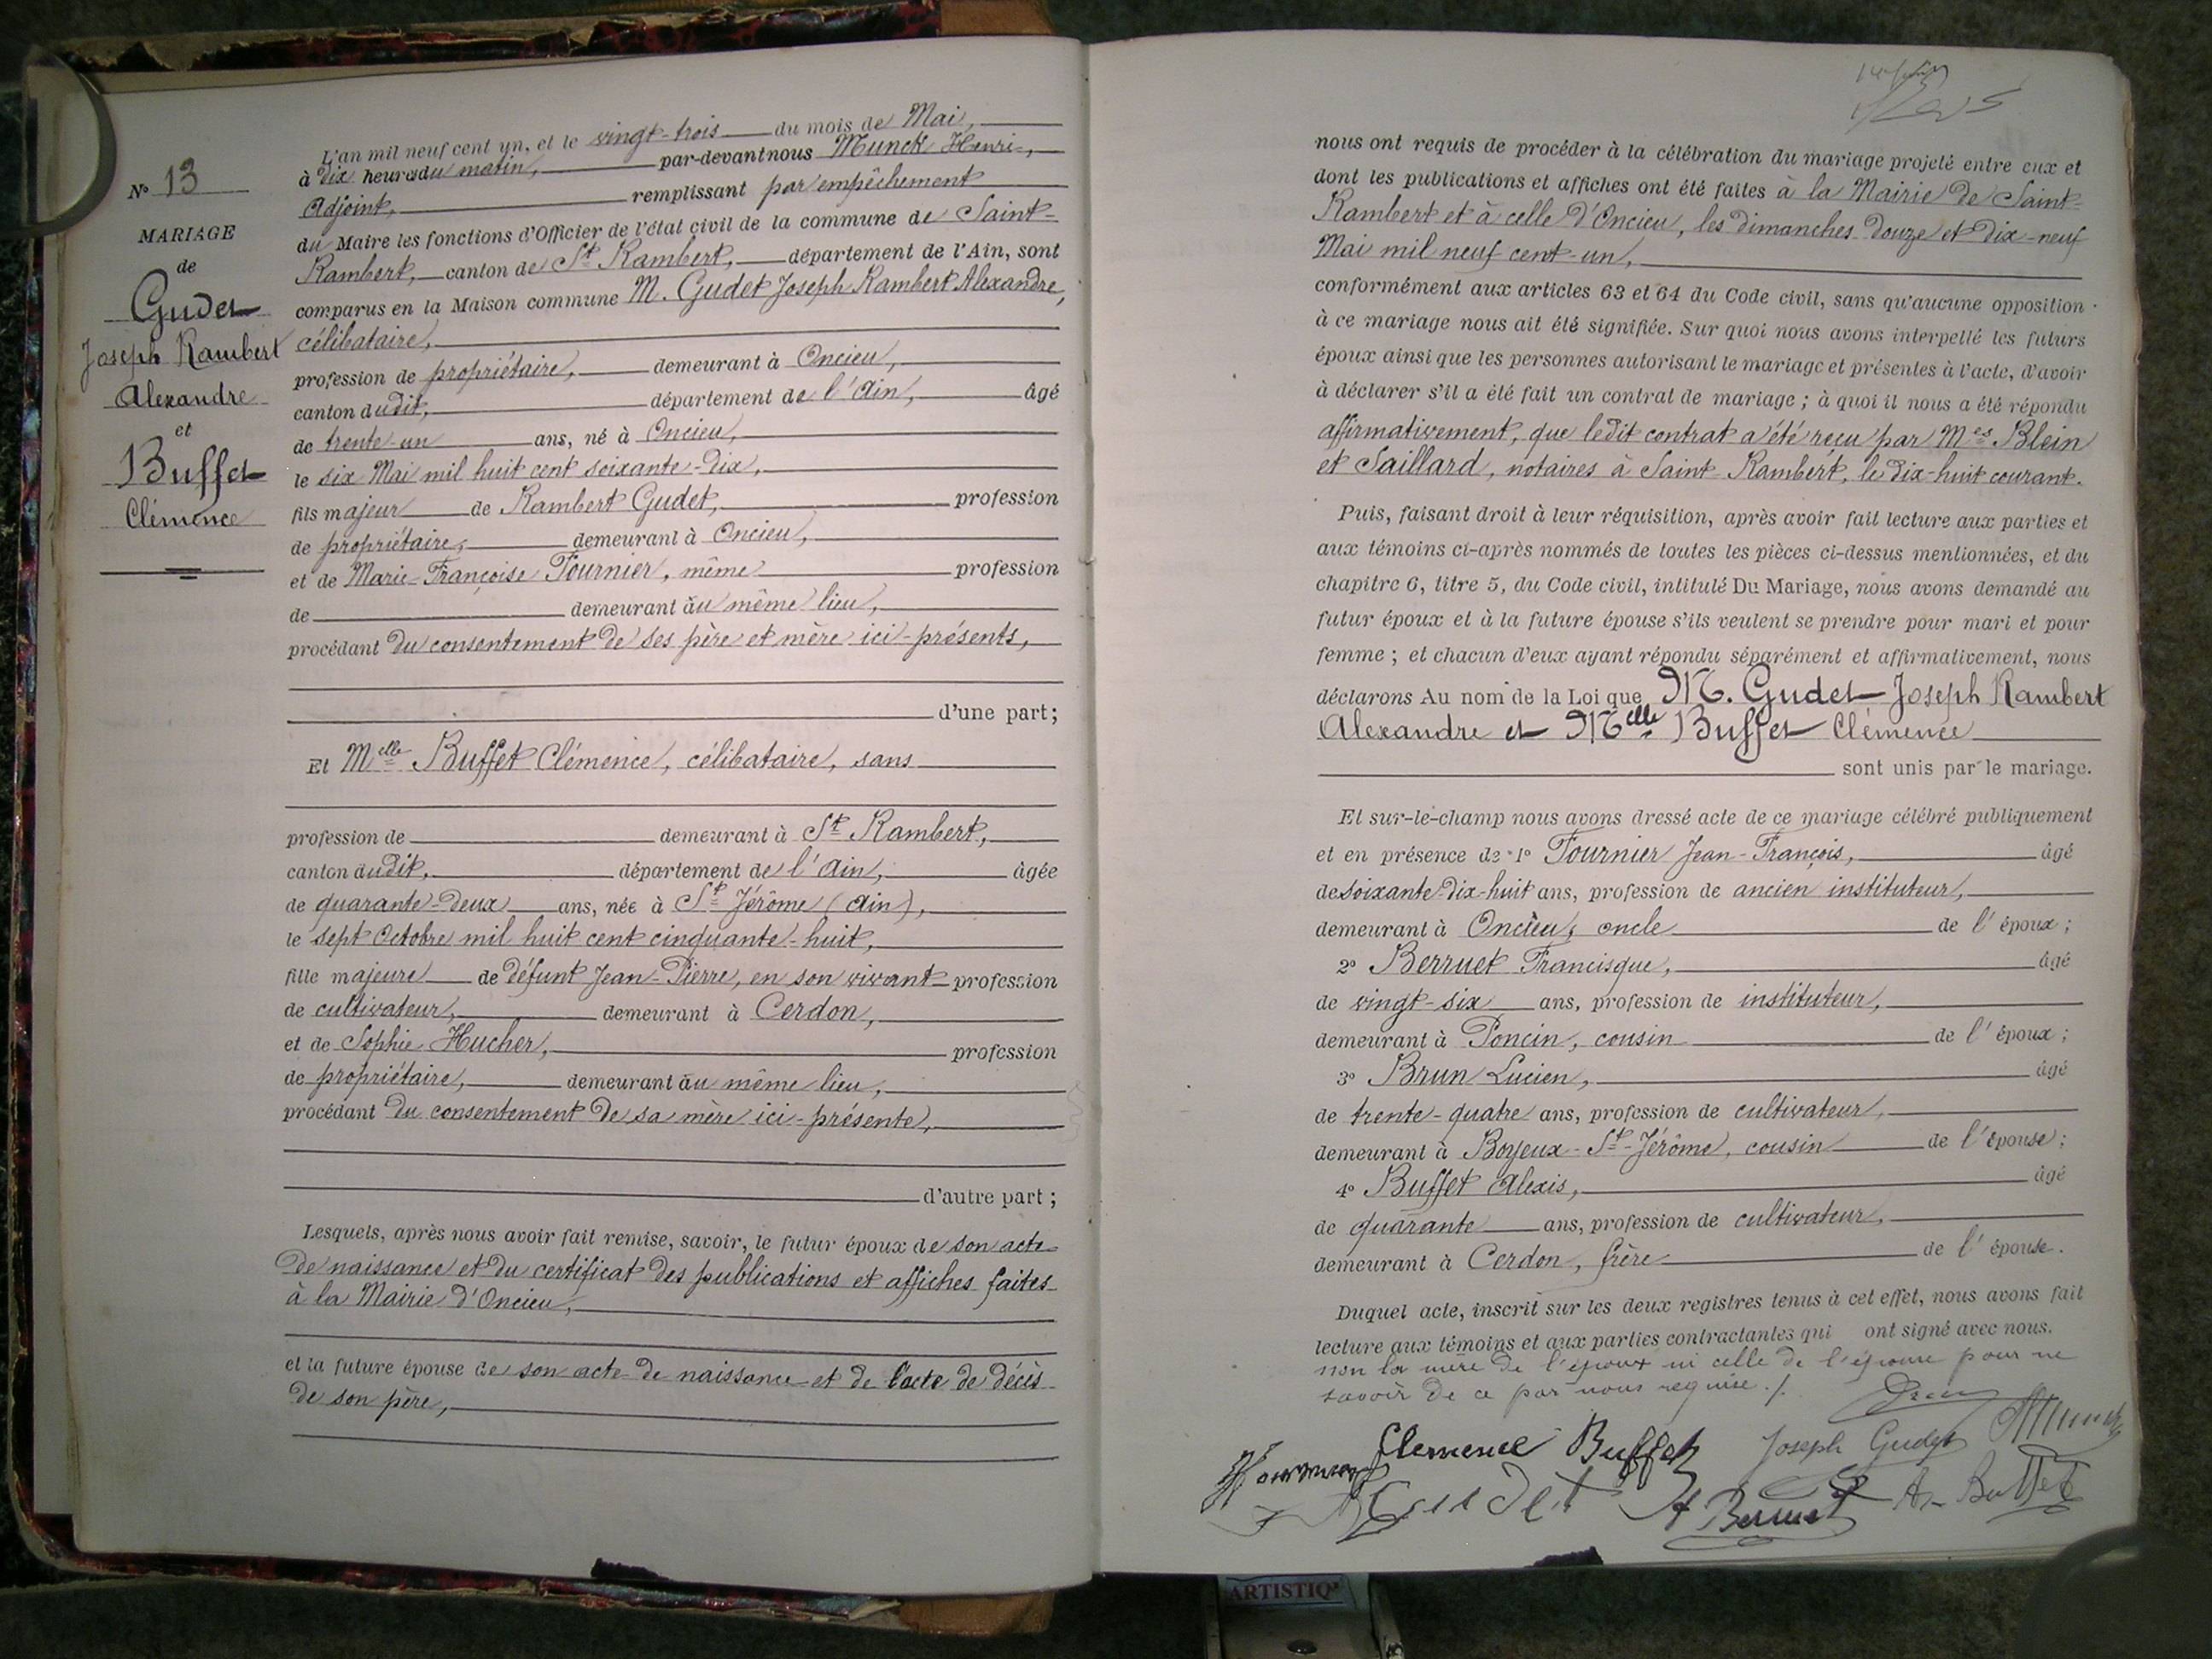 N° 13
MARIAGE
de
Gudet
Joseph Rambert
Alexandre
et
Buffet
Clémence
L'an mil neuf cent un, et le vingt-trois du mois de Mai,
à dix heures du matin, par-devant nous Munck Henri,
Adjoint, remplissant par empêchement
du Maire les fonctions d'Officier de l'état civil de la commune de Saint-
Rambert, canton de St Rambert, département de l'Ain, sont
comparus en la Maison commune M. Gudet Joseph Rambert Alexandre,
célibataire,
profession de propriétaire, demeurant à Oncieu,
canton dudit, département de l'Ain, âgé
de trente-un ans, né à Oncieu,
le six Mai mil huit cent soixante-dix,
fils majeur de Rambert Gudet, profession
de propriétaire, demeurant à Oncieu,
et de Marie-Françoise Fournier, même profession
de demeurant au même lieu,
procédant du consentement de ses père et mère ici-présents,
d'une part;
Et Melle Buffet Clémence, célibataire, sans
profession de demeurant à St Rambert,
canton dudit, département de l'Ain, âgée
de quarante-deux ans, née à St Jérôme (Ain),
le sept Octobre mil huit cent cinquante-huit,
fille majeure de défunt Jean-Pierre, en son vivant profession
de cultivateur, demeurant à Cerdon,
et de Sophie Hucher, profession
de propriétaire, demeurant au même lieu,
procédant du consentement de sa mère ici-présente,
d'autre part;
Lesquels, après nous avoir fait remise, savoir, le futur époux de son acte
de naissance et du certificat des publications et affiches faites
à la Mairie d'Oncieu,
et la future épouse de son acte de naissance et de l'acte de décès
de son père,
nous ont requis de procéder à la célébration du mariage projeté entre eux et
dont les publications et affiches ont été faites à la Mairie de Saint-
Rambert et à celle d'Oncieu, les dimanches douze et dix-neuf
Mai mil neuf cent-un,
conformément aux articles 63 et 64 du Code civil, sans qu'aucune opposition
à ce mariage nous ait été signifiée. Sur quoi nous avons interpellé les futurs
époux ainsi que les personnes autorisant le mariage et présentes à l'acte, d'avoir
à déclarer s'il a été fait un contrat de mariage; à quoi il nous a été répondu
affirmativement, que ledit contrat a été reçu par Mes Blein
et Saillard, notaires à Saint-Rambert, le dix-huit courant.
Puis, faisant droit à leur réquisition, après avoir fait lecture aux parties et
aux témoins ci-après nommés de toutes les pièces ci-dessus mentionnées, et du
chapitre 6, titre 5, du Code civil, intitulé Du Mariage, nous avons demandé au
futur époux et à la future épouse s'ils veulent se prendre pour mari et pour
femme; et chacun d'eux ayant répondu séparément et affirmativement, nous
déclarons Au nom de la Loi que M. Gudet Joseph Rambert
Alexandre et Melle Buffet Clémence
sont unis par le mariage.
Et sur-le-champ nous avons dressé acte de ce mariage célébré publiquement
et en présence de 1° Fournier Jean-François, âgé
de soixante-dix-huit ans, profession de ancien instituteur,
demeurant à Oncieu, oncle de l'époux;
2° Berruet Francisque, âgé
de vingt-six ans, profession de instituteur,
demeurant à Poncin, cousin de l'époux;
3° Brun Lucien, âgé
de trente-quatre ans, profession de cultivateur,
demeurant à Boyeux-St-Jérôme, cousin de l'épouse;
4° Buffet Alexis, âgé
de quarante ans, profession de cultivateur,
demeurant à Cerdon, frère de l'épouse.
Duquel acte, inscrit sur les deux registres tenus à cet effet, nous avons fait
lecture aux témoins et aux parties contractantes qui ont signé avec nous.
non la mère de l'époux ni celle de l'épouse pour ne
savoir de ce par nous requise./.
Clemence Buffet Joseph Gudet Munck
Gudet F Berruet A. Buffet
ARTISTIQ